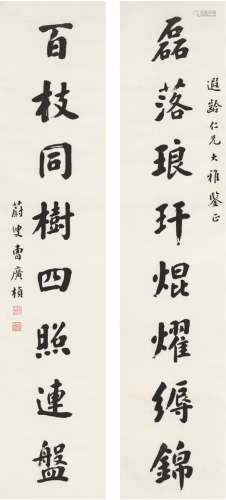 遐齡仁兄大雅鑒正
磊落琅玕焜燿縟錦
百枝同樹四照連盤
蔚叟曹廣楨